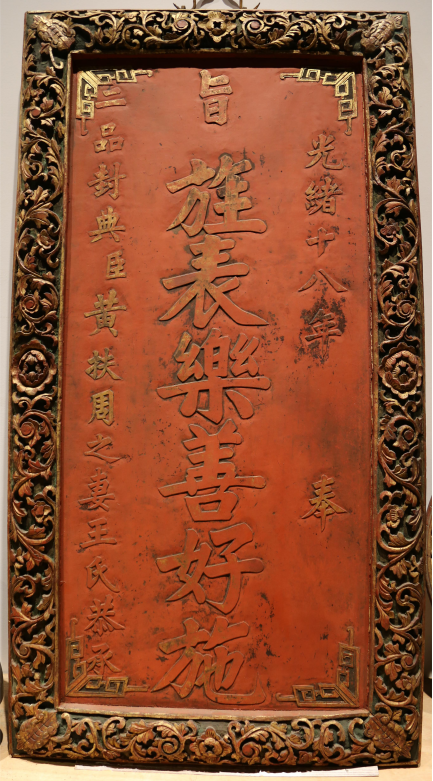 光緒十八年 奉
旨 旌表樂善好施
三品封典臣黃扶周之妻王氏恭承